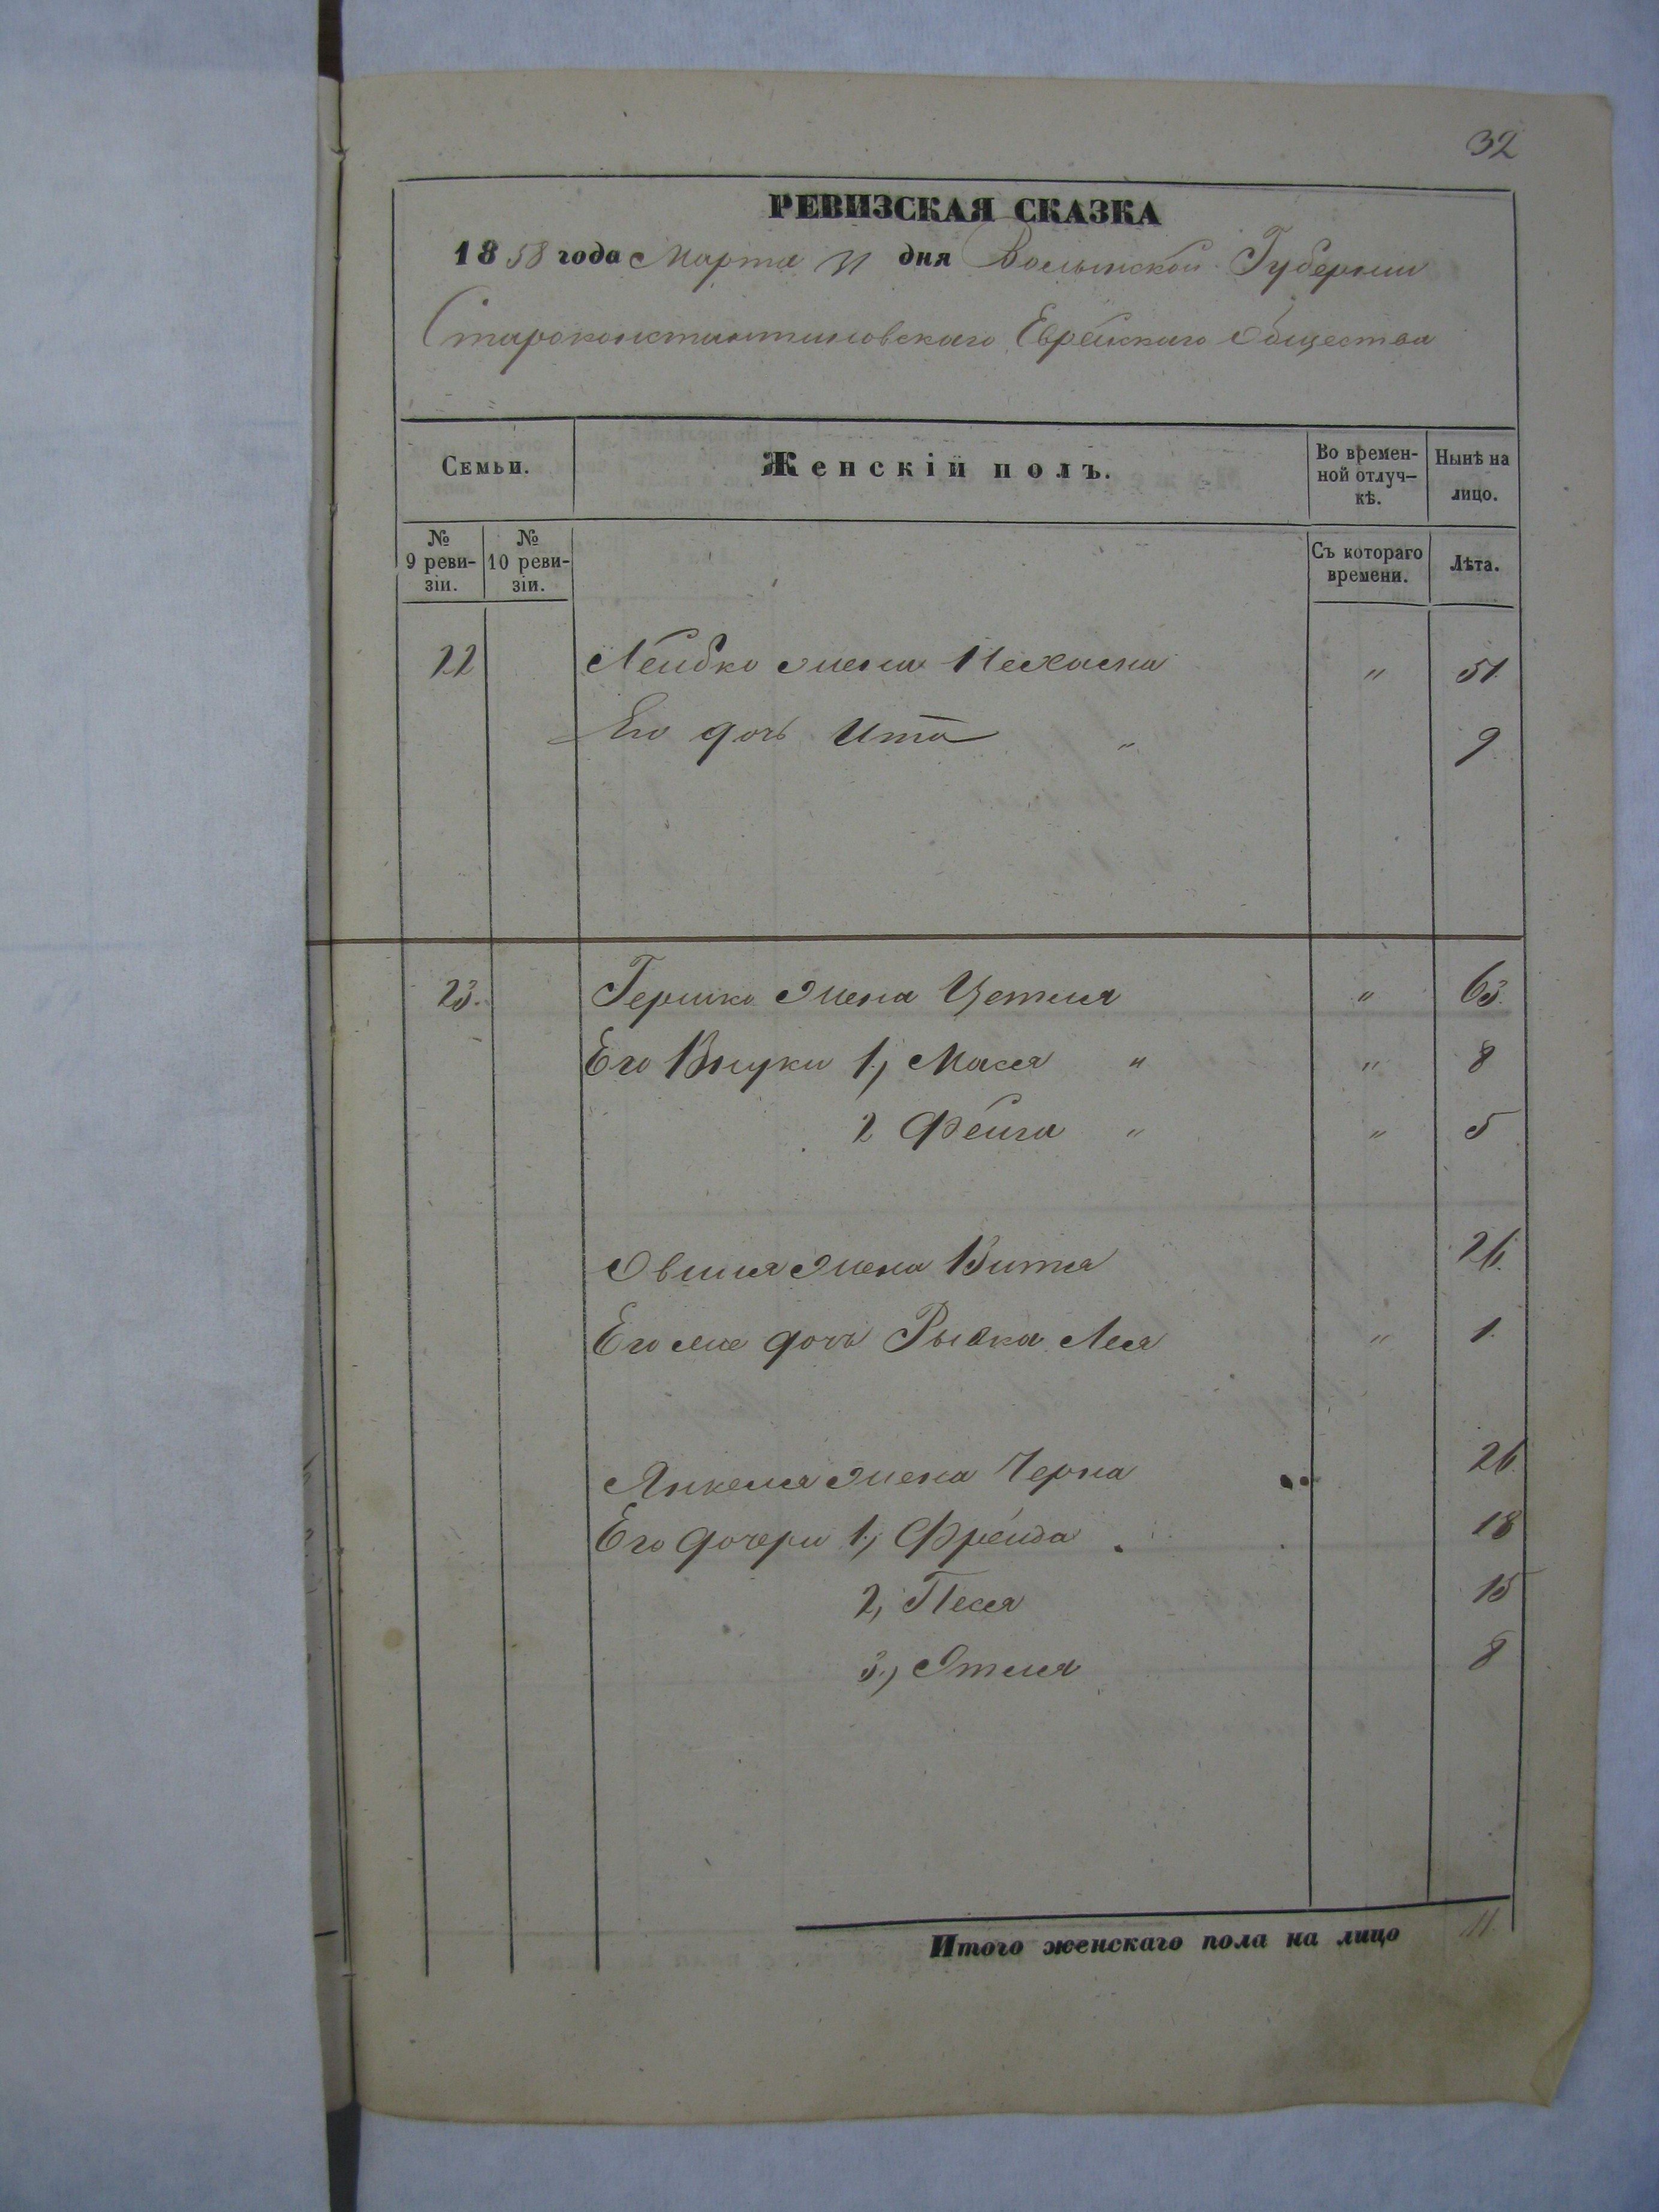 32
РЕВИЗСКАЯ СКАЗКА
1858 года Марта 31 дня Волынской Губернии
Староконстантиновскаго Еврейскаго Общества
Семьи.
Женскій полъ.
Во времен-
ной отлуч-
кѣ.
Нынѣ на
лицо.
№
9 реви-
зіи.
№
10 реви-
зіи.
Съ котораго
времени.
Лѣта.
22 Лейбко жена Нехасна " 51.
Его дочь Ита " 9
23. Гершко жена Цетля " 63.
Его Внуки 1, Мася " " 8
2 Фейга " " 5
Овшия жена Витя 26.
Его же дочь Рывка Лея " 1.
Янкеля жена Черна 26.
Его дочери 1, Фрейда 18
2, Песя 15
3, Этля 8
Итого женскаго пола на лицо 11.